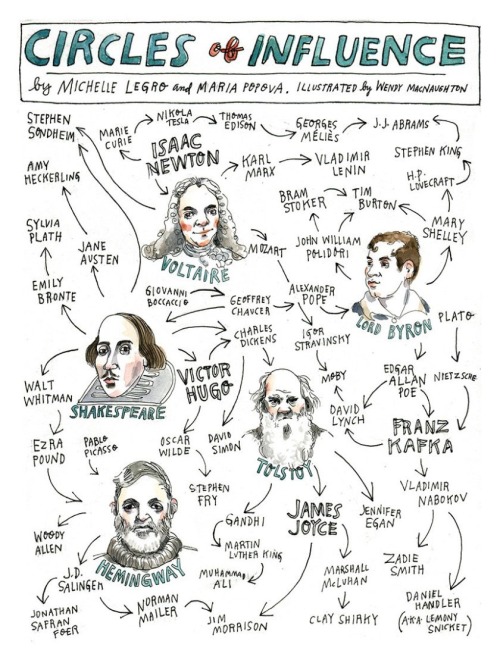 CIRCLES of INFLUENCE
by MICHELLE LEGRO and MARIA POPOVA. ILLUSTRATED by WENDY MACNAUGHTON
STEPHEN
SONDHEIM
MARIE
CURIE
NIKOLA
TESLA
THOMAS
EDISON
GEORGES
MÉLIÈS
J.J. ABRAMS
ISAAC
NEWTON
KARL
MARX
VLADIMIR
LENIN
STEPHEN KING
AMY
HECKERLING
H.P.
LOVECRAFT
BRAM
STOKER
TIM
BURTON
MARY
SHELLEY
SYLVIA
PLATH
JANE
AUSTEN
MOZART
JOHN WILLIAM
POLIDORI
VOLTAIRE
EMILY
BRONTE
GIOVANNI
BOCCACCIO
GEOFFREY
CHAUCER
ALEXANDER
POPE
LORD BYRON
PLATO
CHARLES
DICKENS
IGOR
STRAVINSKY
WALT
WHITMAN
SHAKESPEARE
VICTOR
HUGO
MOBY
EDGAR
ALLAN
POE
NIETZSCHE
DAVID
LYNCH
FRANZ
KAFKA
EZRA
POUND
PABLO
PICASSO
OSCAR
WILDE
DAVID
SIMON
TOLSTOY
STEPHEN
FRY
VLADIMIR
NABOKOV
GANDHI
JAMES
JOYCE
JENNIFER
EGAN
WOODY
ALLEN
MARTIN
LUTHER KING
ZADIE
SMITH
HEMINGWAY
J.D.
SALINGER
MUHAMMAD
ALI
MARSHALL
McLUHAN
JONATHAN
SAFRAN
FOER
NORMAN
MAILER
JIM
MORRISON
CLAY SHIRKY
DANIEL
HANDLER
(A.K.A. LEMONY
SNICKET)